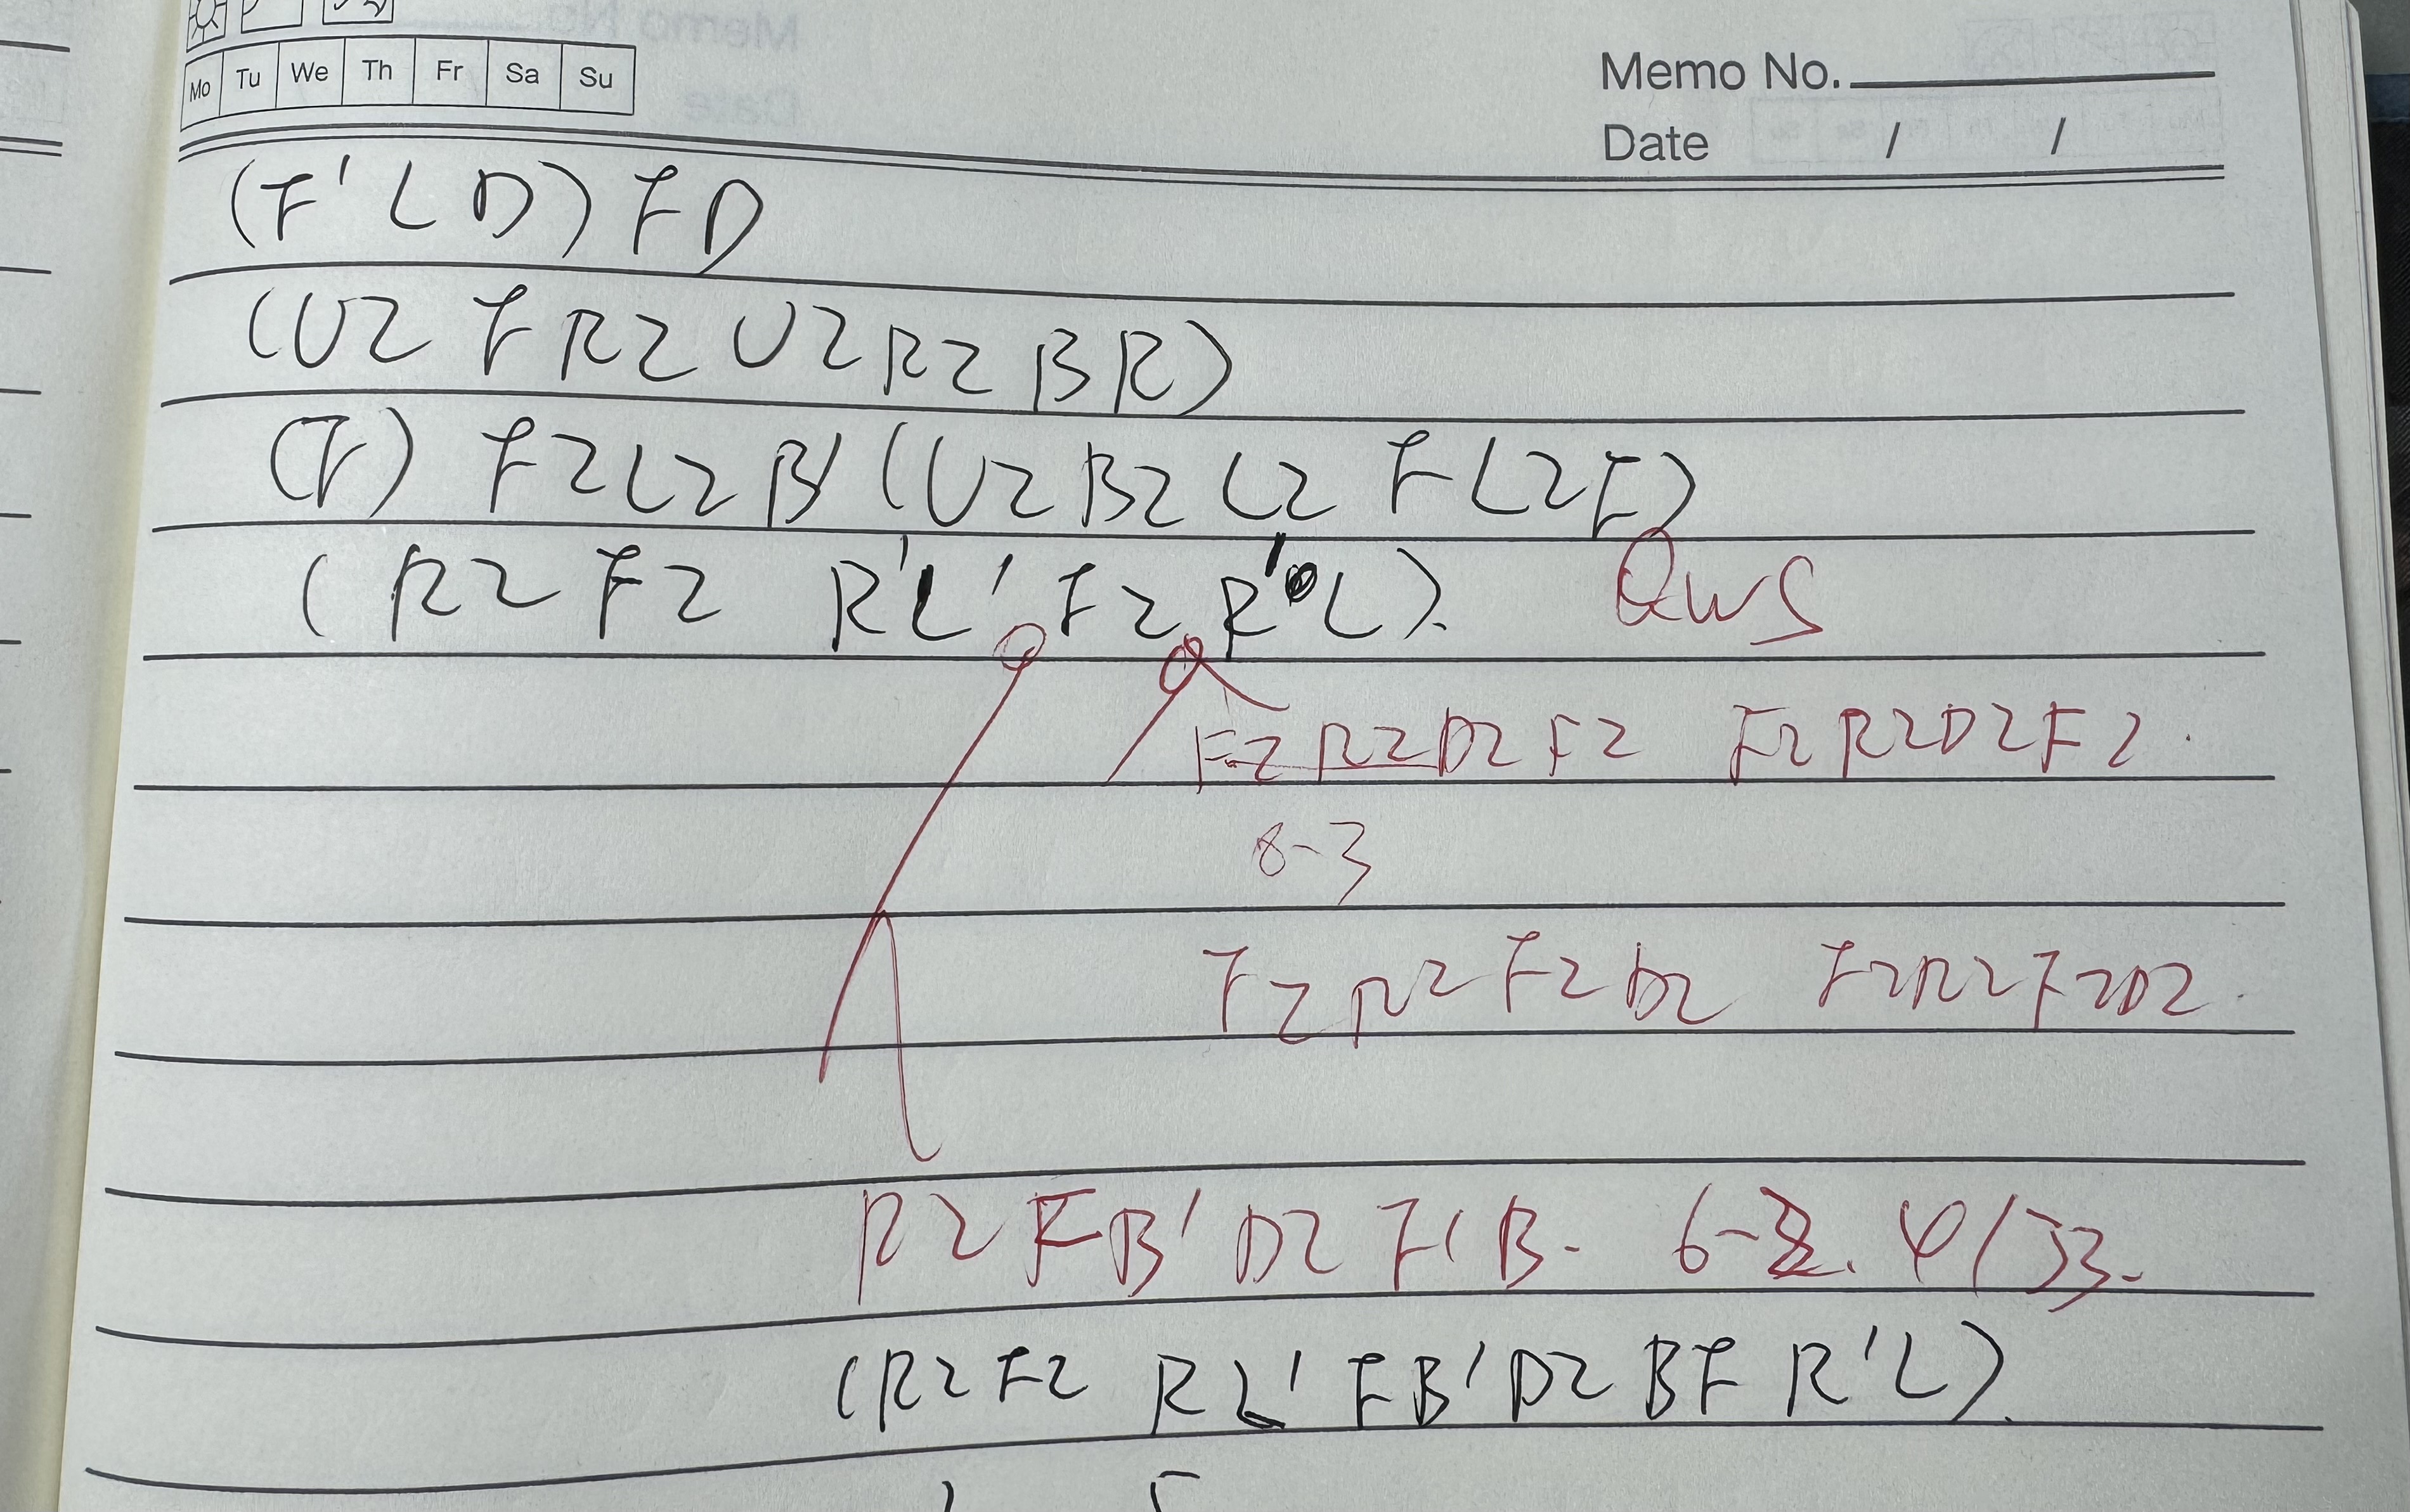 Mo Tu We Th Fr Sa Su
Memo No.
Date / /
(F' L D) F D
(U2 F R2 U2 R2 B R)
(F) F2 L2 B' (U2 B2 L2 F L2 F)
(R2 F2 R' L' F2 R' L).
F2 R2 D2 F2 F2 R2 D2 F2.
8-3
F2 R2 F2 D2 F2 R2 F2 D2.
R2 F B' D2 F' B. 6-2.
(R2 F2 R L' F B' D2 B F R' L).